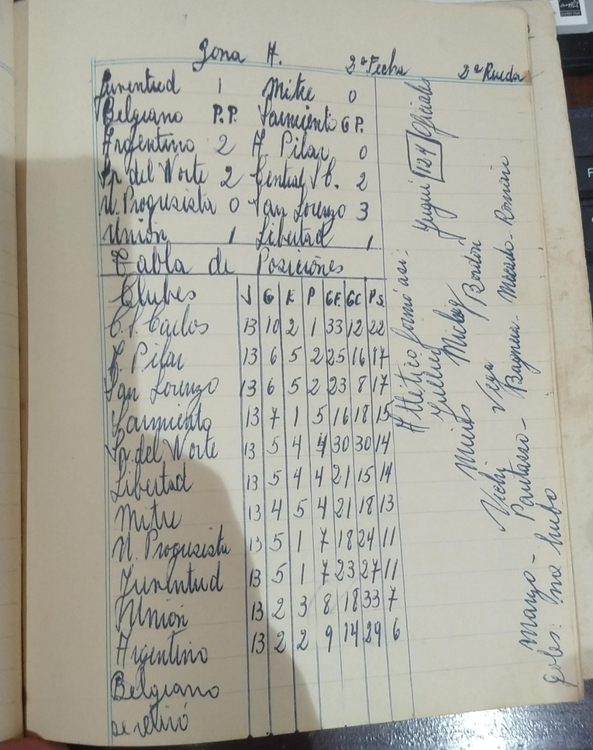 Zona A. 2ª Fecha 2ª Rueda
Juventud 1 Mitre 0
Belgrano P.P. Sarmiento G P.
Argentino 2 A. Pilar 0
Sp del Norte 2 Central S C. 2
U. Progresista 0 San Lorenzo 3
Unión 1 Libertad 1
Tabla de Posiciones
Clubes J G E P GF GC Ps
C. S. Carlos 13 10 2 1 33 12 22
A. Pilar 13 6 5 2 25 16 17
San Lorenzo 13 6 5 2 23 8 17
Sarmiento 13 7 1 5 16 18 15
Sp del Norte 13 5 4 4 30 30 14
Libertad 13 5 4 4 21 15 14
Mitre 13 4 5 4 21 18 13
U. Progresista 13 5 1 7 18 24 11
Juventud 13 5 1 7 23 27 11
Unión 13 2 3 8 18 33 7
Argentino 13 2 2 9 14 29 6
Belgrano
se retiró
Jugué 124 Oficiales
Atlético formó así:
Vega
goles: no hubo